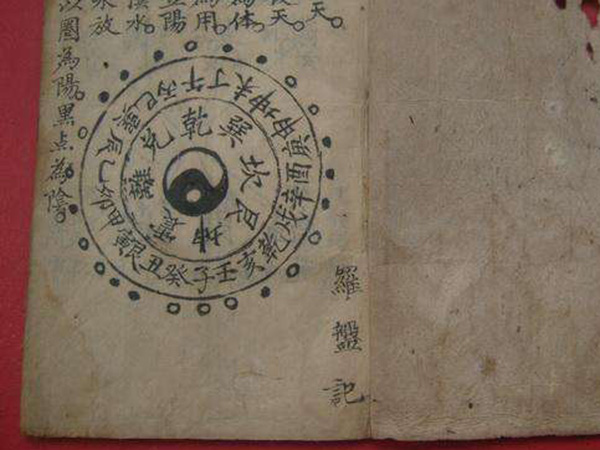 天。
天。
為体。
為用。
陽
水。
放
以圈為陽。黑点為陰。
午丁未坤申庚酉辛戌乾亥壬子癸丑艮寅甲卯乙辰巽巳丙
乾巽坎艮坤震離兌
羅盤記